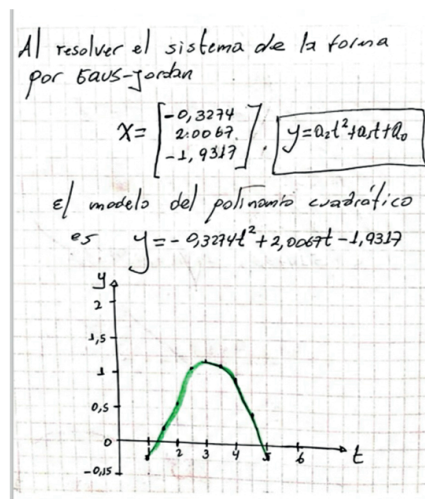 Al resolver el sistema de la forma
por Gaus-Jordan
X = [-0,3274
2.0067
-1,9317] . y=a₂t²+a₁t+a₀
El modelo del polinomio cuadrático
es y = -0,3274t²+2,0067t-1,9317
y
2
1,5
1
0,5
0
-0,15
1 2 3 4 5 6 t